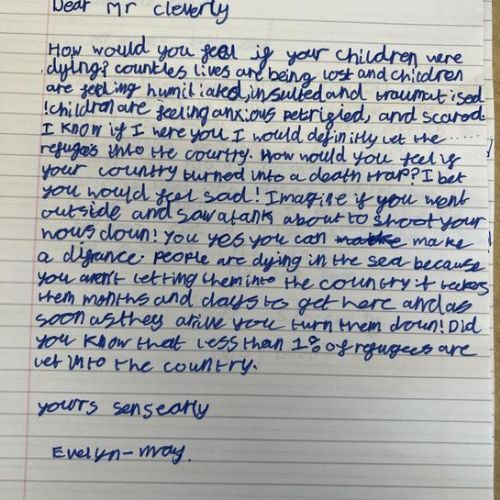 Dear Mr cleverly
How would you feel if your children were
dying? countles lives are being lost and children
are feeling humiliated, insulted and traumatised
!children are feeling anxious petrigied, and scared
I know if I were you I would definitly let the .....
refugees into the courtry. How would you feel if
your country turned into a death trap? I bet
you would feel sad! Imagine if you went
outside and saw a tank about to shoot your
hous down! You yes you can make
a digrance. People are dying in the sea because
you aren't letting them into the country it takes
them months and days to get here and as
soon as they arive you turn them down! Did
you know that less than 1% of refugees are
let into the country.
yours sensearly
Evelyn-may.